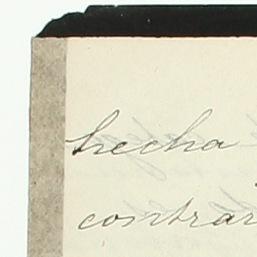 hecha
contrar